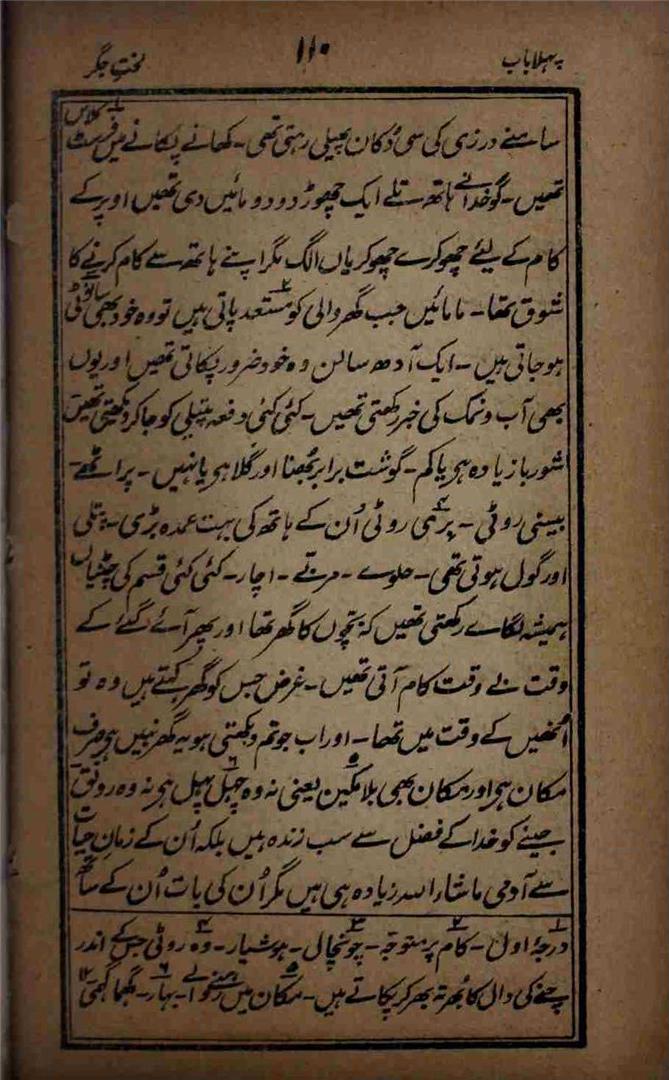 پہلا باب ۱۱۰ لختِ جگر
سامنے درزی کی سی دُکان پھیلی رہتی تھی۔ کھانے پکانے میں فسٹ کلاس
تھیں۔ گو خدا نے ہاتھ تلے ایک چھوڑ دو دو مائیں دی تھیں اوپر کے
کام کے لیئے چھوکرے چھوکریاں الگ مگر اپنے ہاتھ سے کام کرنے کا
شوق تھا۔ مامائیں جب گھر والی کو مستعد پاتی ہیں تو وہ خود بھی
ہو جاتی ہیں۔ ایک آدھ سالن وہ خود ضرور پکاتی تھیں اور یوں
بھی آب و نمک کی خبر رکھتی تھیں۔ کئی کئی دفعہ پتیلی کو جا کر دیکھتی تھیں
شوربا زیادہ ہی یا کم۔ گوشت برابر بُھنا اور گلا ہی یا نہیں۔ پراٹھے۔
بیسنی روٹی۔ برھی روٹی اُن کے ہاتھ کی بہت عمدہ بڑی۔ پتلی
اور گول ہوتی تھی۔ حلوے۔ مربّے۔ اچار۔ کئی کئی قسم کی چٹنیاں
ہمیشہ لگائے رکھتی تھیں کہ بچّوں کا گھر تھا اور پھر آئے گئے کے
وقت بے وقت کام آتی تھیں۔ غرض جس کو گھر کہتے ہیں وہ تو
اُنھیں کے وقت میں تھا۔ اور اب جو تم دیکھتی ہو یہ گھر نہیں ہی صرف
مکان ہی اور مکان بھی بلا مکین یعنی نہ وہ چہل پہل ہی نہ وہ رونق
جینے کو خدا کے فضل سے سب زندہ ہیں بلکہ اُن کے زمانِ حیات
سے آدمی ماشاء اللہ زیادہ ہی ہیں مگر اُن کی بات اُن کے ساتھ
۱ درجۂ اول۔ ۲ کام پر متوجہ۔ ۳ چونچال۔ ہوشیار۔ ۴ وہ روٹی جس کے اندر
چنے کی دال کا بُھرتہ بھر کر پکاتے ہیں۔ ۵ مکان میں رہنے والے۔ ۶ بہار۔ گہما گہمی ۱۲